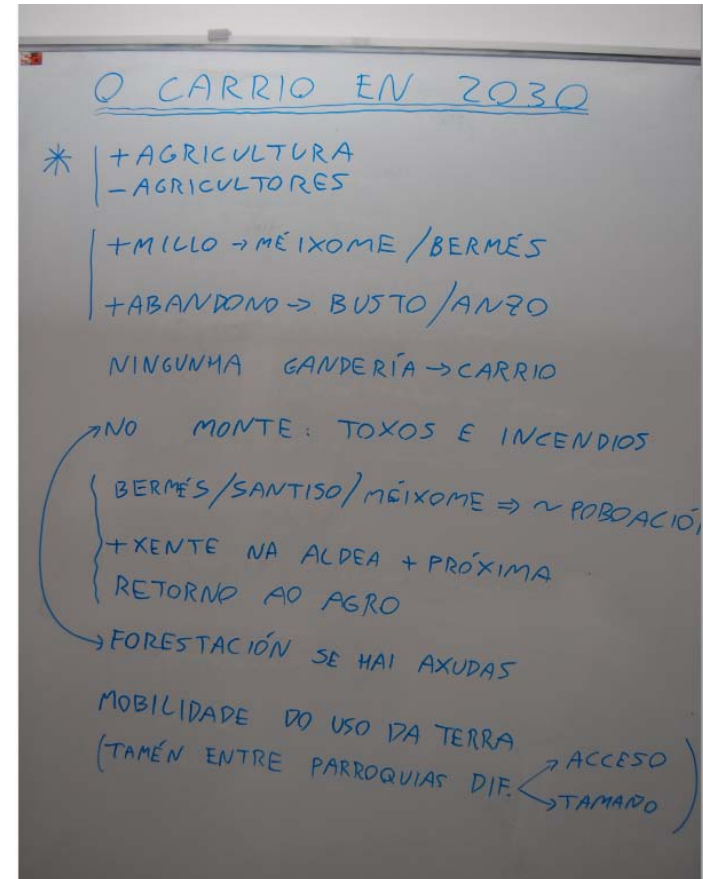 O CARRIO EN 2030
* + AGRICULTURA
- AGRICULTORES
+ MILLO → MÉIXOME / BERMÉS
+ ABANDONO → BUSTO / ANZO
NINGUNHA GANDERÍA → CARRIO
NO MONTE: TOXOS E INCENDIOS
BERMÉS/SANTISO/MÉIXOME ⇒ ~ POBOACIÓN
+ XENTE NA ALDEA + PRÓXIMA
RETORNO AO AGRO
FORESTACIÓN SE HAI AXUDAS
MOBILIDADE DO USO DA TERRA
(TAMÉN ENTRE PARROQUIAS DIF. → ACCESO
→ TAMAÑO)